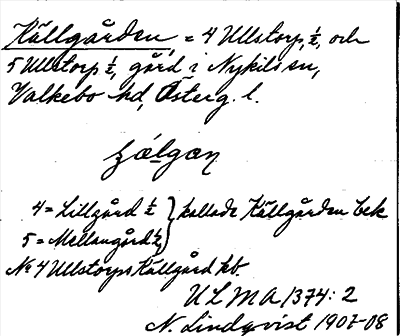 Källgården = 4 Ullstorp, ½, och
5 Ullstorp ½, gård i Nykils sn,
Valkebo hd, Österg. l.
4 = Lillgård ½ } kallade Källgården bek
5 = Mellangård ½
No 4 Ullstorps Källgård kb.
ULMA 1374: 2
N. Lindqvist 1907-08